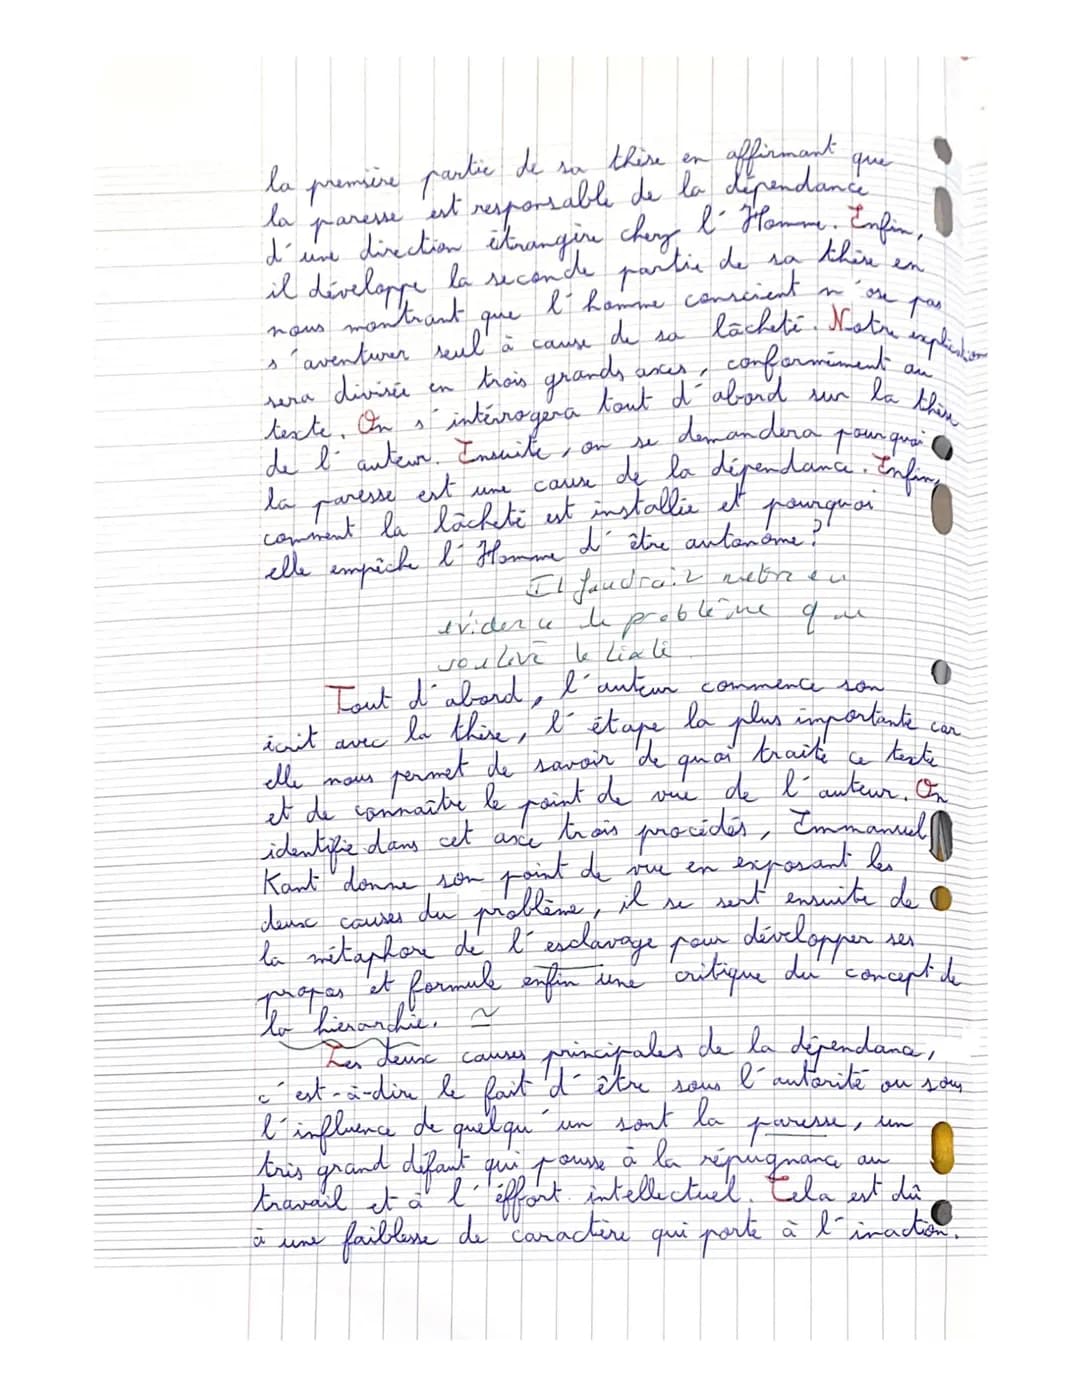 la première partie de sa thèse en affirmant que
la paresse est responsable de la dépendance
d'une direction étrangère cherz l'Homme. Enfin,
il développe la seconde partie de sa thèse en
nous montrant que l'homme conscient n'ose pas
s'aventurer seul à cause de sa lâcheté. Notre explication
sera divisée en trois grands axes, conformément au
texte. On s'intérrogera tout d'abord sur la thèse
de l'auteur. Ensuite, on se demandera pourquoi
la paresse est une cause de la dépendance. Enfin,
comment la lâcheté est installée et pourquoi
elle empêche l'Homme d'être autonome?
Il faudrait mettre en
évidence le problème que
soulève le texte
Tout d'abord, l'auteur commence son
écrit avec la thèse, l'étape la plus importante car
elle nous permet de savoir de quoi traite ce texte
et de connaître le point de vue de l'auteur. On
identifie dans cet axe trois procédés, Emmanuel
Kant donne son point de vue en exposant les
deux causes du problème, il se sert ensuite de
la métaphore de l'esclavage pour développer ses
propos et formule enfin une critique du concept de
la hiérarchie. ~
Les deux causes principales de la dépendance,
c'est-à-dire le fait d'être sous l'autorité ou sous
l'influence de quelqu'un sont la paresse, un
très grand défaut qui pousse à la répugnance au
travail et à l'éffort intellectuel. Cela est dû
à une faiblesse de caractère qui porte à l'inaction.